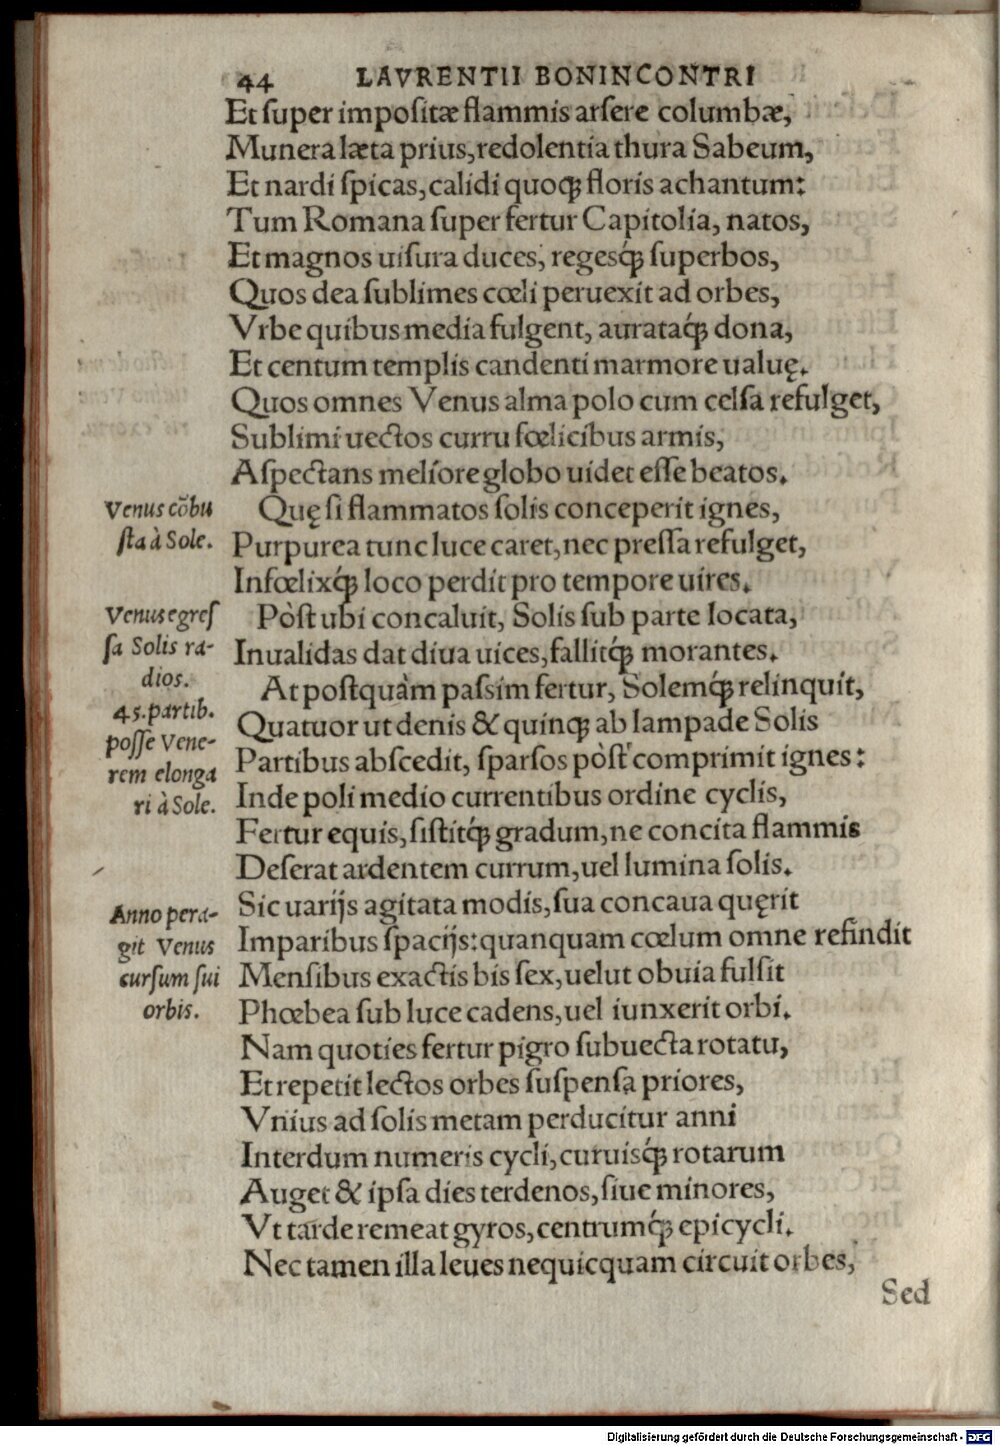 44 LAVRENTII BONINCONTRI
Et ſuper impoſitæ flammis arſere columbæ,
Munera læta prius, redolentia thura Sabeum,
Et nardi ſpicas, calidi quoqꝫ floris achantum:
Tum Romana ſuper fertur Capitolia, natos,
Et magnos uiſura duces, regesq́ꝫ ſuperbos,
Quos dea ſublimes cœli peruexit ad orbes,
Vrbe quibus media fulgent, aurataq́ꝫ dona,
Et centum templis candenti marmore ualuę.
Quos omnes Venus alma polo cum celſa refulget,
Sublimi uectos curru fœlicibus armis,
Aſpectans meliore globo uidet eſſe beatos.
Venus cõbu
ſta à Sole.
Quę ſi flammatos ſolis conceperit ignes,
Purpurea tunc luce caret, nec preſſa refulget,
Infœlixq́ꝫ loco perdit pro tempore uires.
Venus egreſ
ſa Solis ra-
dios.
Pòſt ubi concaluit, Solis ſub parte locata,
Inualidas dat diua uices, fallitq́ꝫ morantes.
45. partib.
poſſe Vene-
rem elonga
ri à Sole.
At poſtquàm paſsim fertur, Solemq́ꝫ relinquit,
Quatuor ut denis & quinqꝫ ab lampade Solis
Partibus abſcedit, ſparſos pòſt comprimit ignes:
Inde poli medio currentibus ordine cyclis,
Fertur equis, ſiſtitq́ꝫ gradum, ne concita flammis
Deſerat ardentem currum, uel lumina ſolis.
Anno pera-
git Venus
curſum ſui
orbis.
Sic uarijs agitata modis, ſua concaua quęrit
Imparibus ſpacijs: quanquam cœlum omne refindit
Menſibus exactis bis ſex, uelut obuia fulſit
Phœbea ſub luce cadens, uel iunxerit orbi.
Nam quoties fertur pigro ſubuecta rotatu,
Et repetit lectos orbes ſuſpenſa priores,
Vnius ad ſolis metam perducitur anni
Interdum numeris cycli, curuisq́ꝫ rotarum
Auget & ipſa dies terdenos, ſiue minores,
Vt tarde remeat gyros, centrumq́ꝫ epicycli.
Nec tamen illa leues nequicquam circuit orbes,
Sed
Digitalisierung gefördert durch die Deutsche Forschungsgemeinschaft - DFG